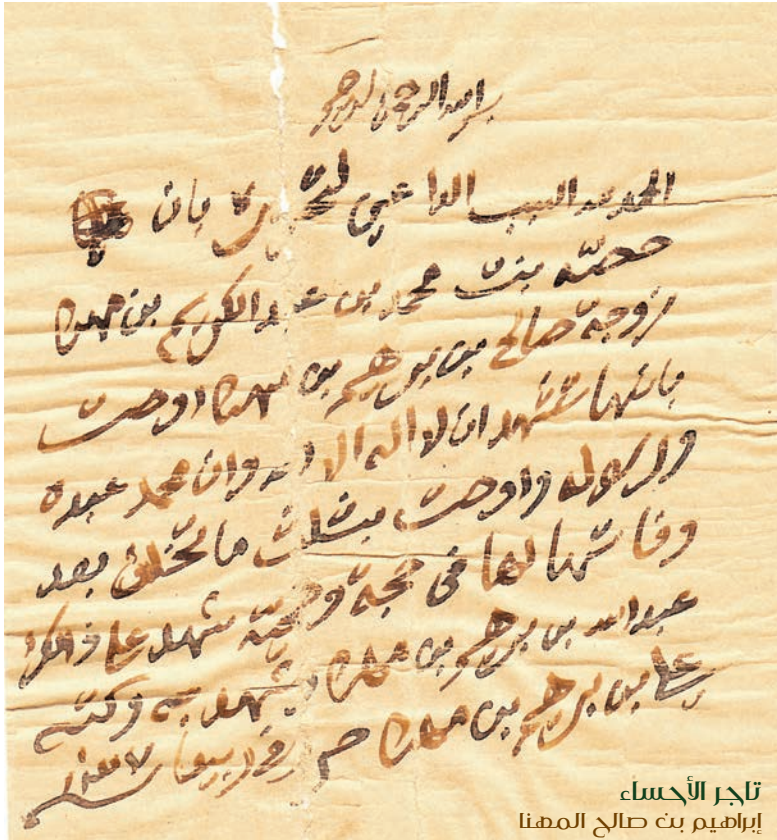 بسم الله الرحمن الرحيم
الحمد لله السبب الداعي لتحريره بان
حصه بنت محمد بن عبد الكريم بن مهنا
زوجة صالح بن برهيم بن مهنا اوصت
بانها تشهد ان لا اله الا الله وان محمد عبده
ورسوله واوصت بثلث ما تخلف بعد
وفاتها لها في حجة وضحية شهد على ذالك
عبد الله بن برهيم بن مهنا وشهد به وكتبه
علي بن برهيم بن مهنا
تاجر الأحساء
إبراهيم بن صالح المهنا